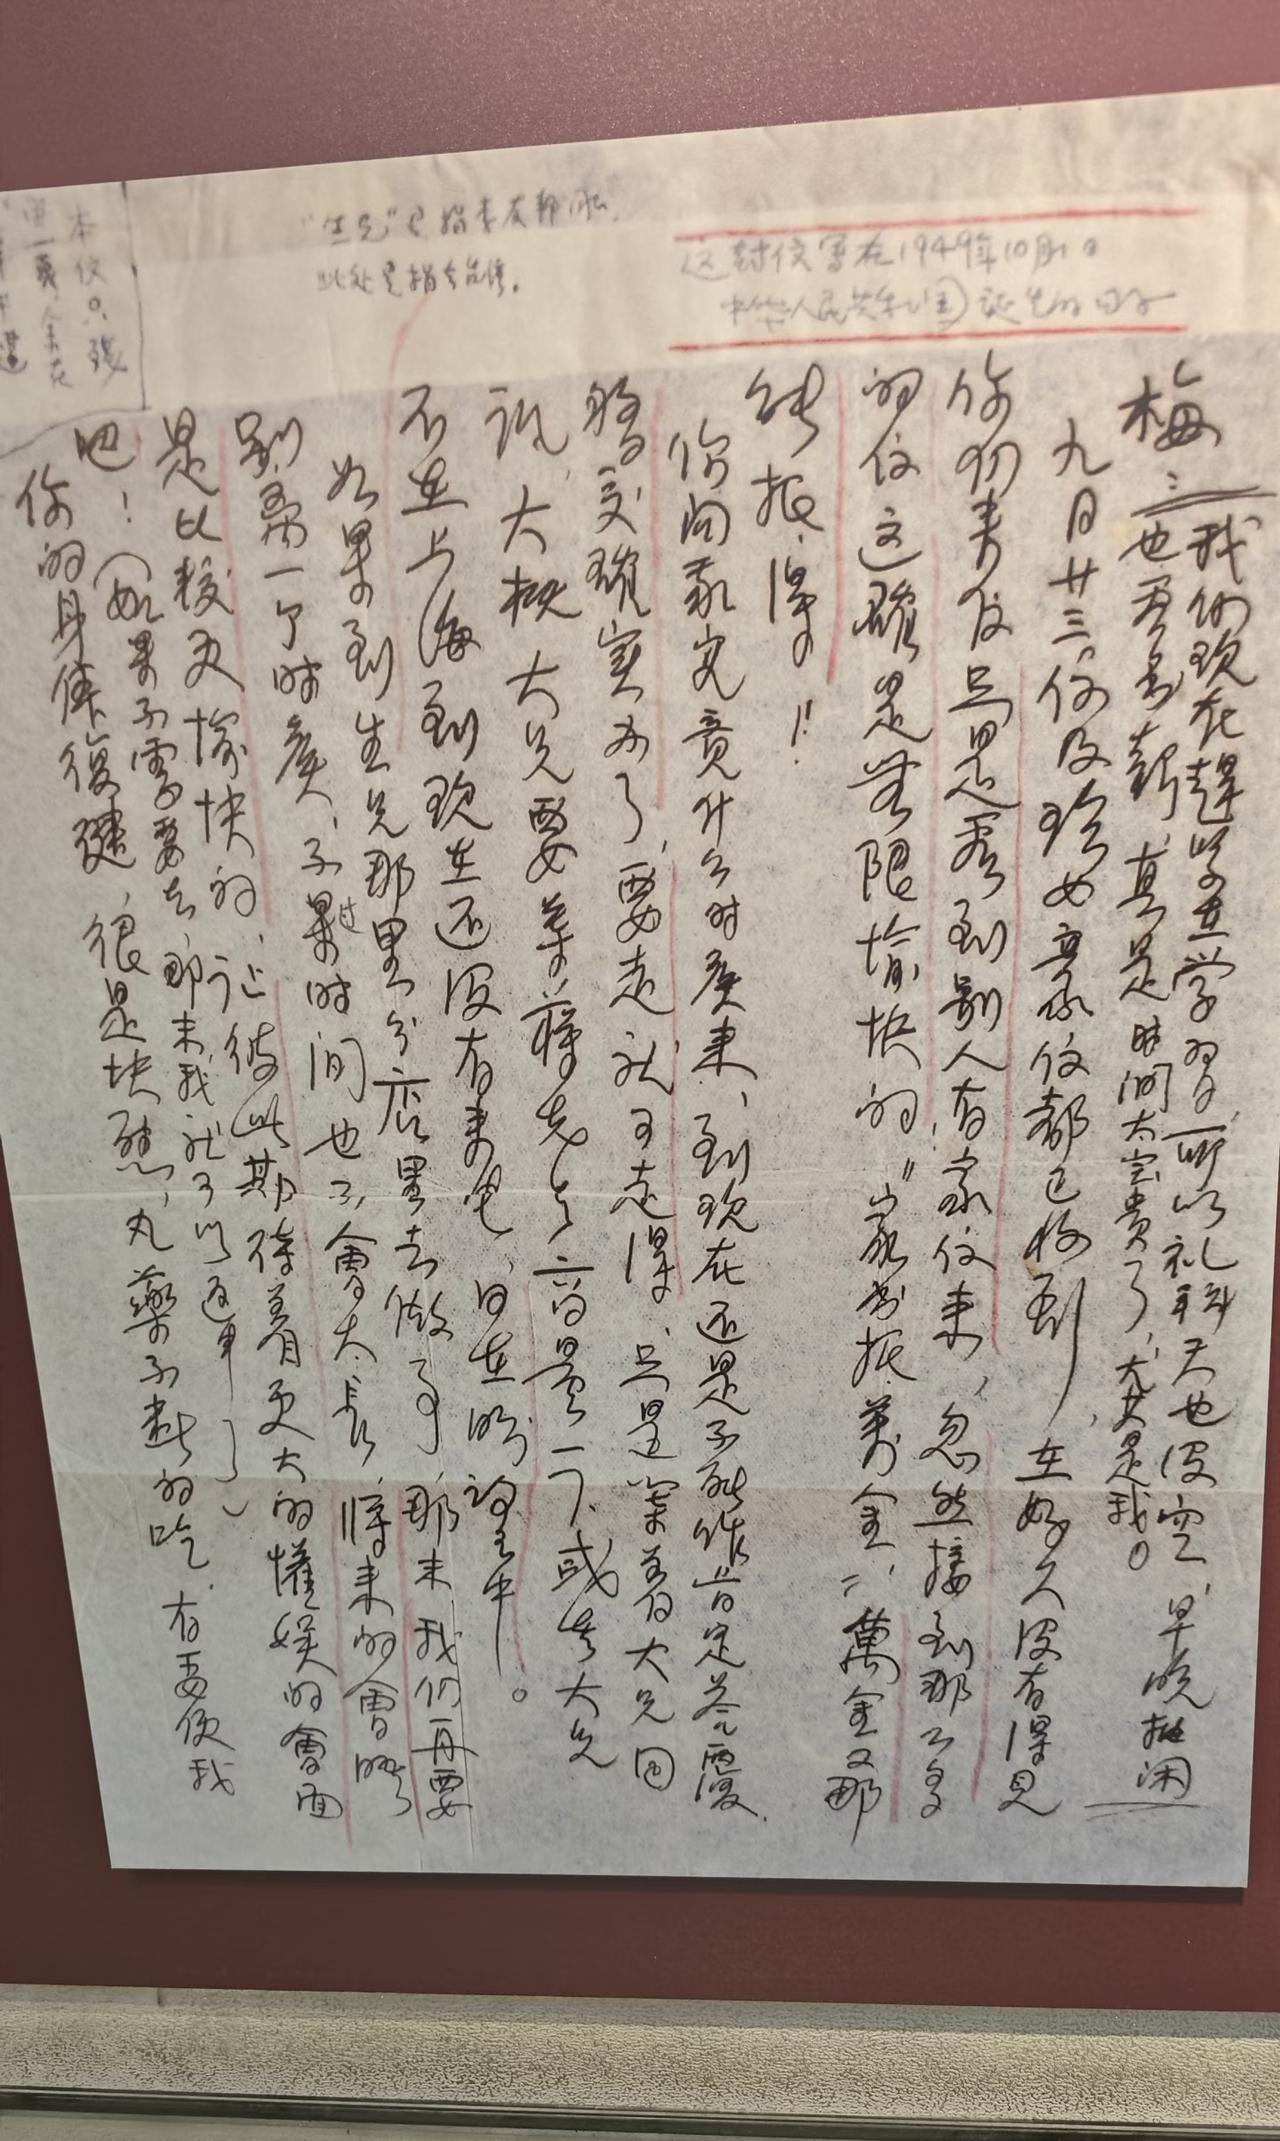 这封信写在1949年10月1日
中华人民共和国诞生的日子
"生兄"是指李友邦
此处是指去台湾。
本纹只
梅：我们现在趕學在学習，所以礼拜天也没空，早晚抽闲
也看書報，真是时间太宝贵了，尤其是我。
九月廿三，你及珍女來信都已收到，在好久没有得见
你们来信只是看到别人有家信来，忽然接到那么多
的信这確是無限愉快的"家书抵萬金"，萬金又那
能抵得！！
你问我究竟什么时候来，到现在还是不能作肯定答覆，
確實了，要走就可走得，只是等着大兄回
訊，大概大兄要等蔣先生商量一下，或者大兄
不在上海到现在还没有来電，日在盼望中。
如果到生兄那里分店里去做事，那末我们再要
别离一个时候，不过时间也不會太長，将来的會晤
是比较更愉快的，让彼此期待着更大的懽娱的會面
吧！（如果不需要去，那末我就可以返申了）
你的身体復健，很是快慰，丸藥不断的吃，有要使我